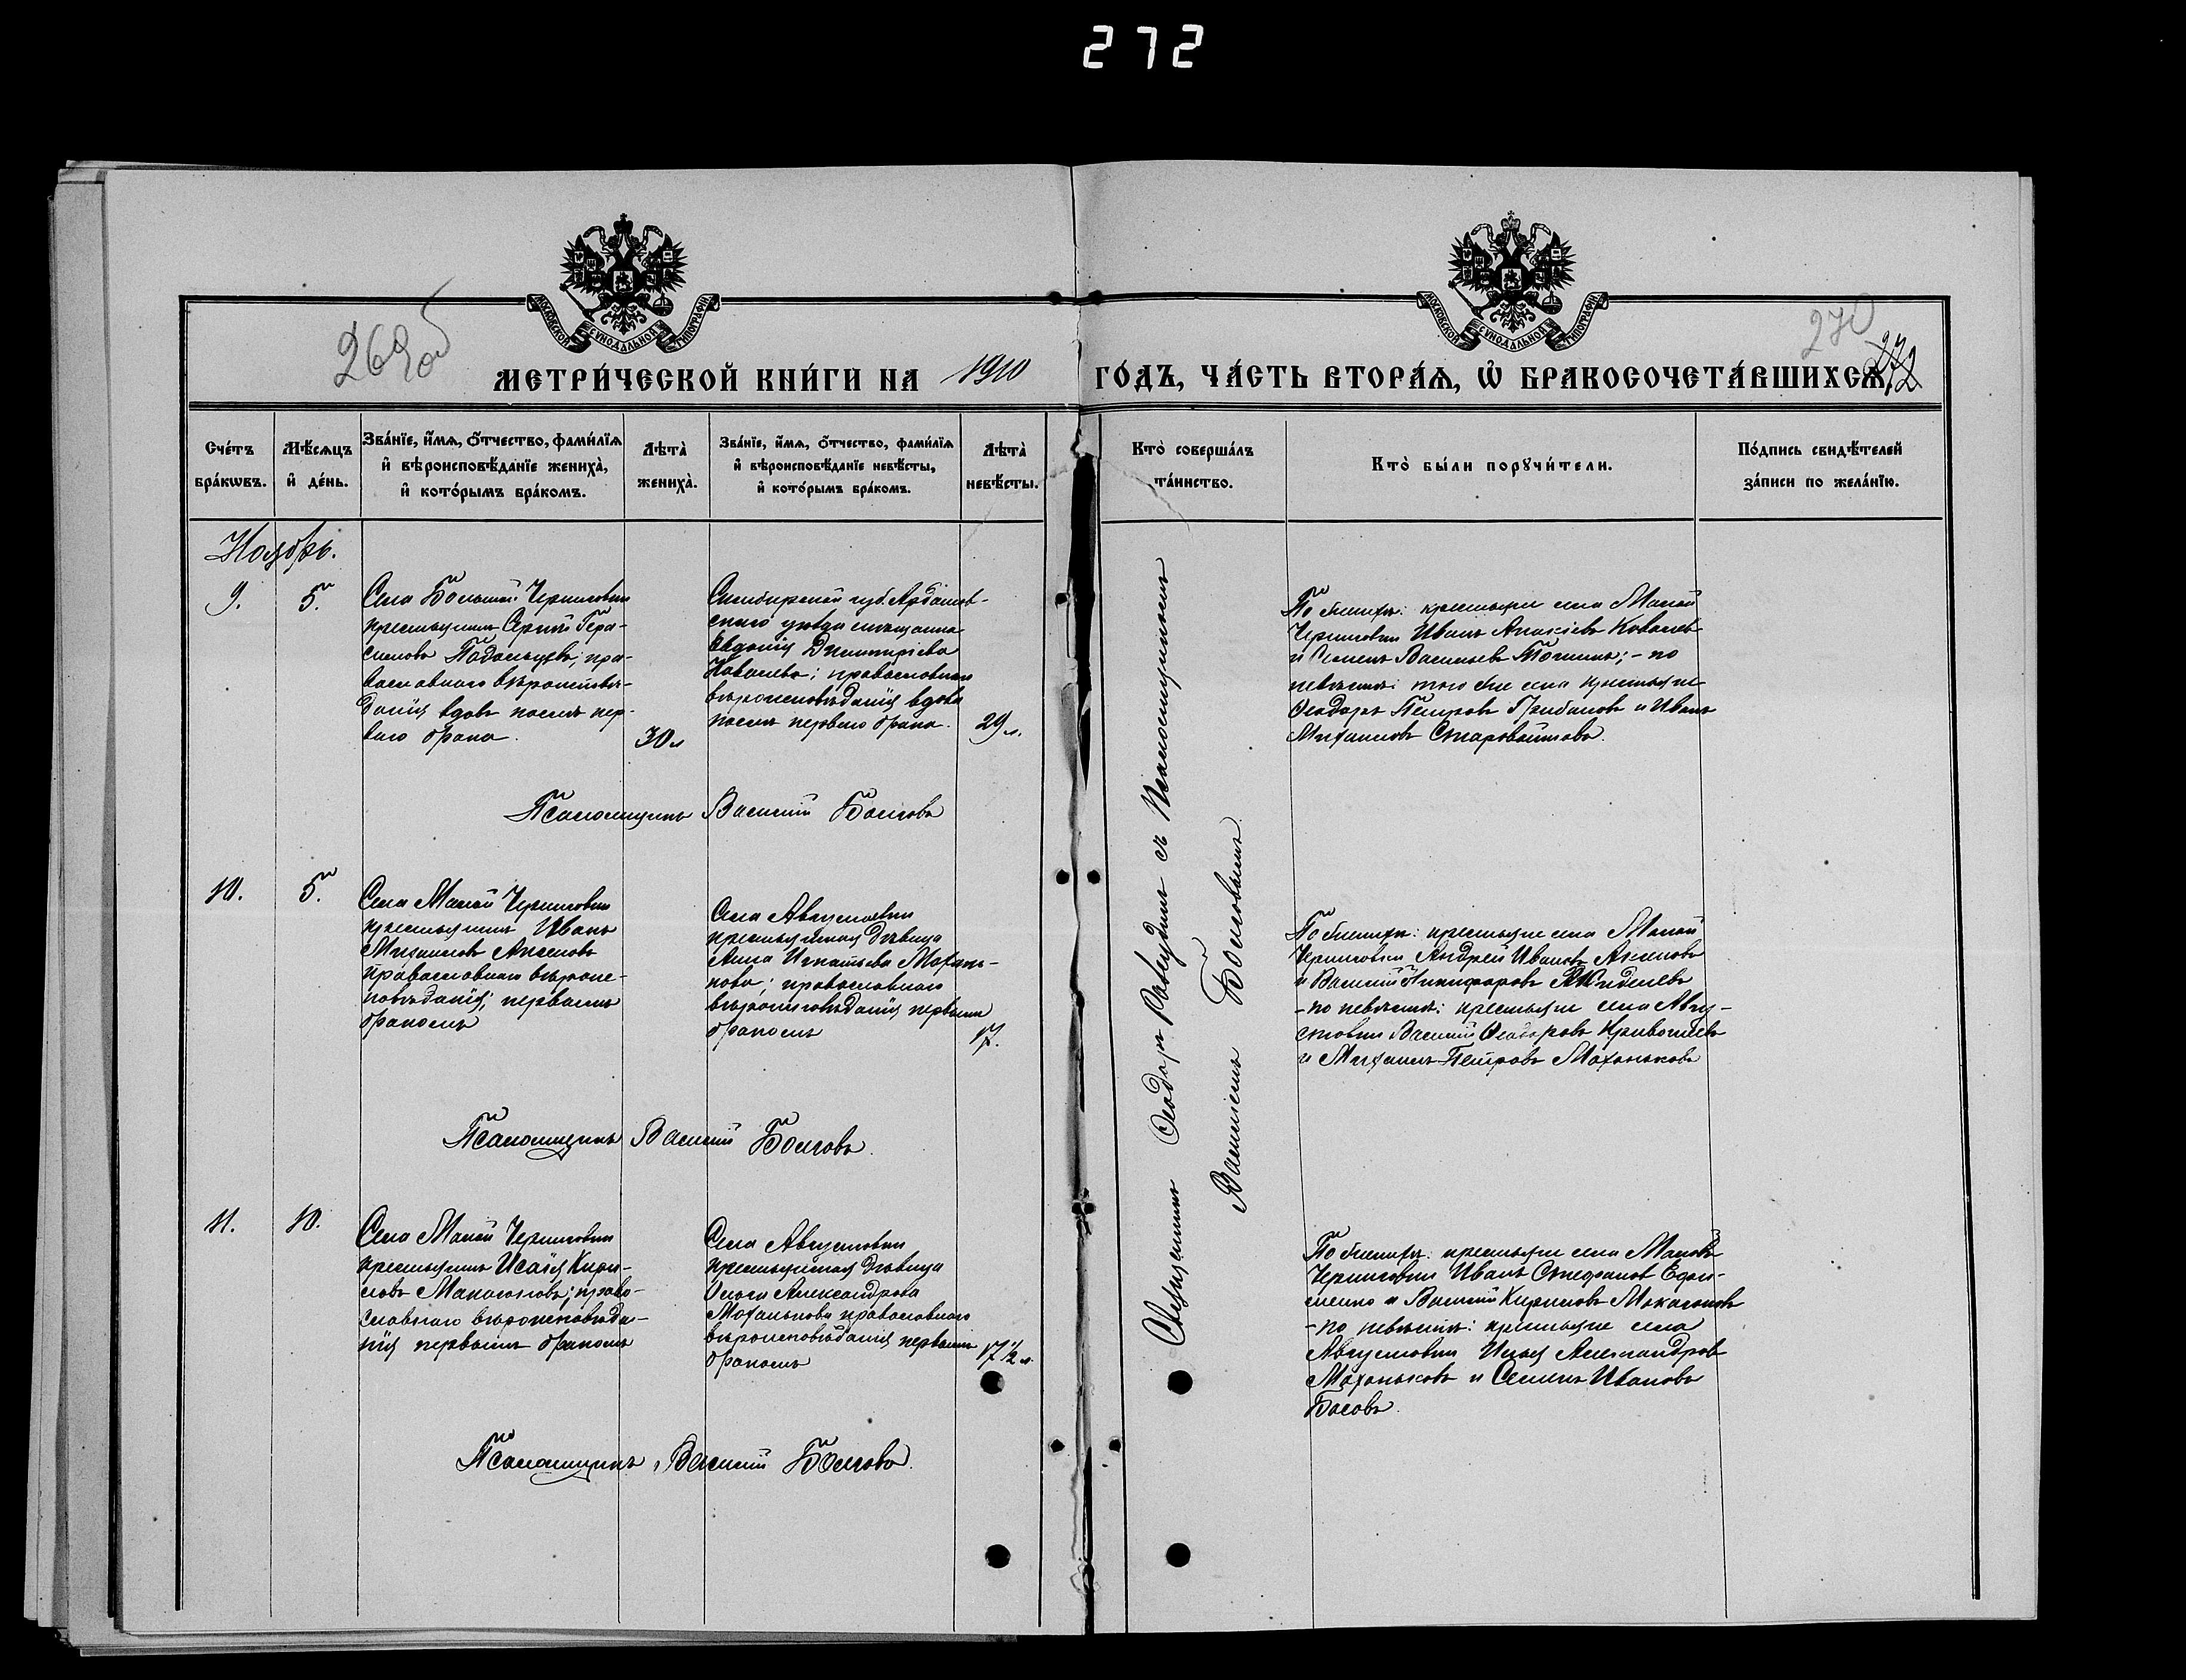 272
269об
270
272
МОСКОВСКОЙ СѴНОДАЛЬНОЙ ТИПОГРАФІИ
МОСКОВСКОЙ СѴНОДАЛЬНОЙ ТИПОГРАФІИ
МЕТРИ́ЧЕСКОЙ КНИ́ГИ НА 1910 ГО́ДЪ, ЧА́СТЬ ВТОРА́Ѧ, Ѡ҆ БРАКОСОЧЕТА́ВШИХСѦ.
Сче́тъ
бра́кѡвъ.
Мѣ́сяцъ
и҆ де́нь.
Зва́нїе, и҆́мѧ, ѻ҆́тчество, фами́лїѧ
и҆ вѣроисповѣ́данїе жениха̀,
и҆ кото́рымъ бра́комъ.
Лѣта̀
жениха̀.
Зва́нїе, и҆́мѧ, ѻ҆́тчество, фами́лїѧ
и҆ вѣроисповѣ́данїе невѣ́сты,
и҆ кото́рымъ бра́комъ.
Лѣта̀
невѣ́сты.
Кто̀ соверша́лъ
та́инство.
Кто̀ бы́ли порꙋчи́тели.
По́дпись свидѣ́телей
за́писи по жела́нїю.
Ноябрь.
9.
5.
Села Большой Черниговки
крестьянинъ Сергій Гера-
симовъ Подольцевъ; пра-
вославнаго вѣроисповѣ-
данія вдовъ послѣ пер-
ваго брака.
30 л
Симбирской губ. Ардатов-
скаго уѣзда мѣщанка
Евдокія Димитріева
Ковалева; православнаго
вѣроисповѣданія вдова
послѣ перваго брака.
29 л.
По женихѣ: крестьяне села Малой
Черниговки Иванъ Ковалев
и Семенъ Васильевъ; - по
невѣстѣ: того же села крестьяне
Ѳеодоръ Петровъ Грибановъ и Иванъ
Михаиловъ
Псаломщикъ Василій Болговъ
10.
5.
Села Малой Черниговки
крестьянинъ Иванъ
Михаиловъ Аксеновъ
православнаго вѣроис-
повѣданія; первымъ
бракомъ
Села Августовки
крестьянская дѣвица
Анна Игнатьева Махонь-
кова; православнаго
вѣроисповѣданія первымъ
бракомъ
17.
По женихѣ: крестьяне села Малой
Черниговки Андрей Ивановъ Аксеновъ
и Василій Никифоровъ
- по невѣстѣ: крестьяне села Авгу-
стовки Василій Ѳеодоровъ
и Михаилъ Петровъ Махоньковъ
Псаломщикъ Василій Болговъ.
11.
10.
Села Малой Черниговки
крестьянинъ Исаія Кири-
ловъ Макагоновъ; право-
славнаго вѣроисповѣда-
нія первымъ бракомъ
Села Августовки
крестьянская дѣвица
Ольга Александрова
Махонькова православнаго
вѣроисповѣданія первымъ
бракомъ
17 ½ л.
По женихѣ: крестьяне села Малой
Черниговки Иванъ Стефановъ
и Василій Кириловъ Макагоновъ
- по невѣстѣ: крестьяне села
Августовки Илья Александров
Махоньковъ и Семенъ Ивановъ
Басовъ.
Псаломщикъ Василій Болговъ.
Священникъ Ѳеодоръ съ Псаломщикомъ
Василіемъ Болговымъ